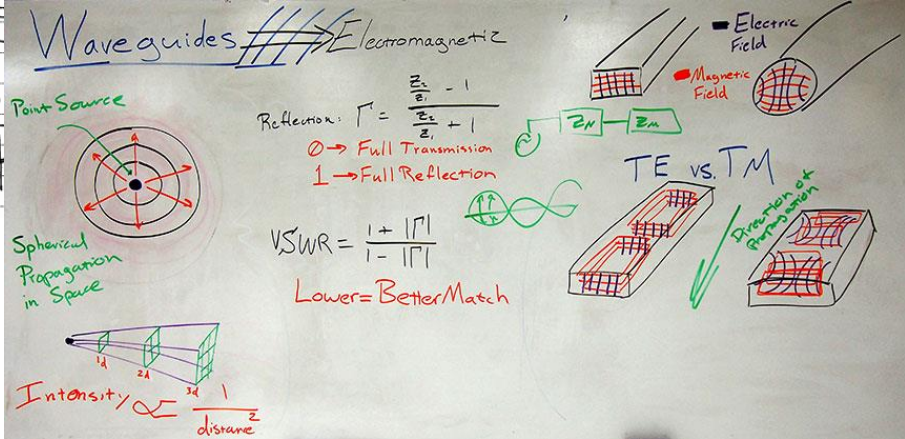 Waveguides Electromagnetic
Point Source
Spherical
Propagation
in Space
1d
2d
3d
Intensity ∝ 1 / distance²
Reflection: Γ = (Z₂/Z₁ - 1) / (Z₂/Z₁ + 1)
0 → Full Transmission
1 → Full Reflection
VSWR = (1 + |Γ|) / (1 - |Γ|)
Lower = Better Match
Electric
Field
Magnetic
Field
TE vs. TM
Direction of
Propagation